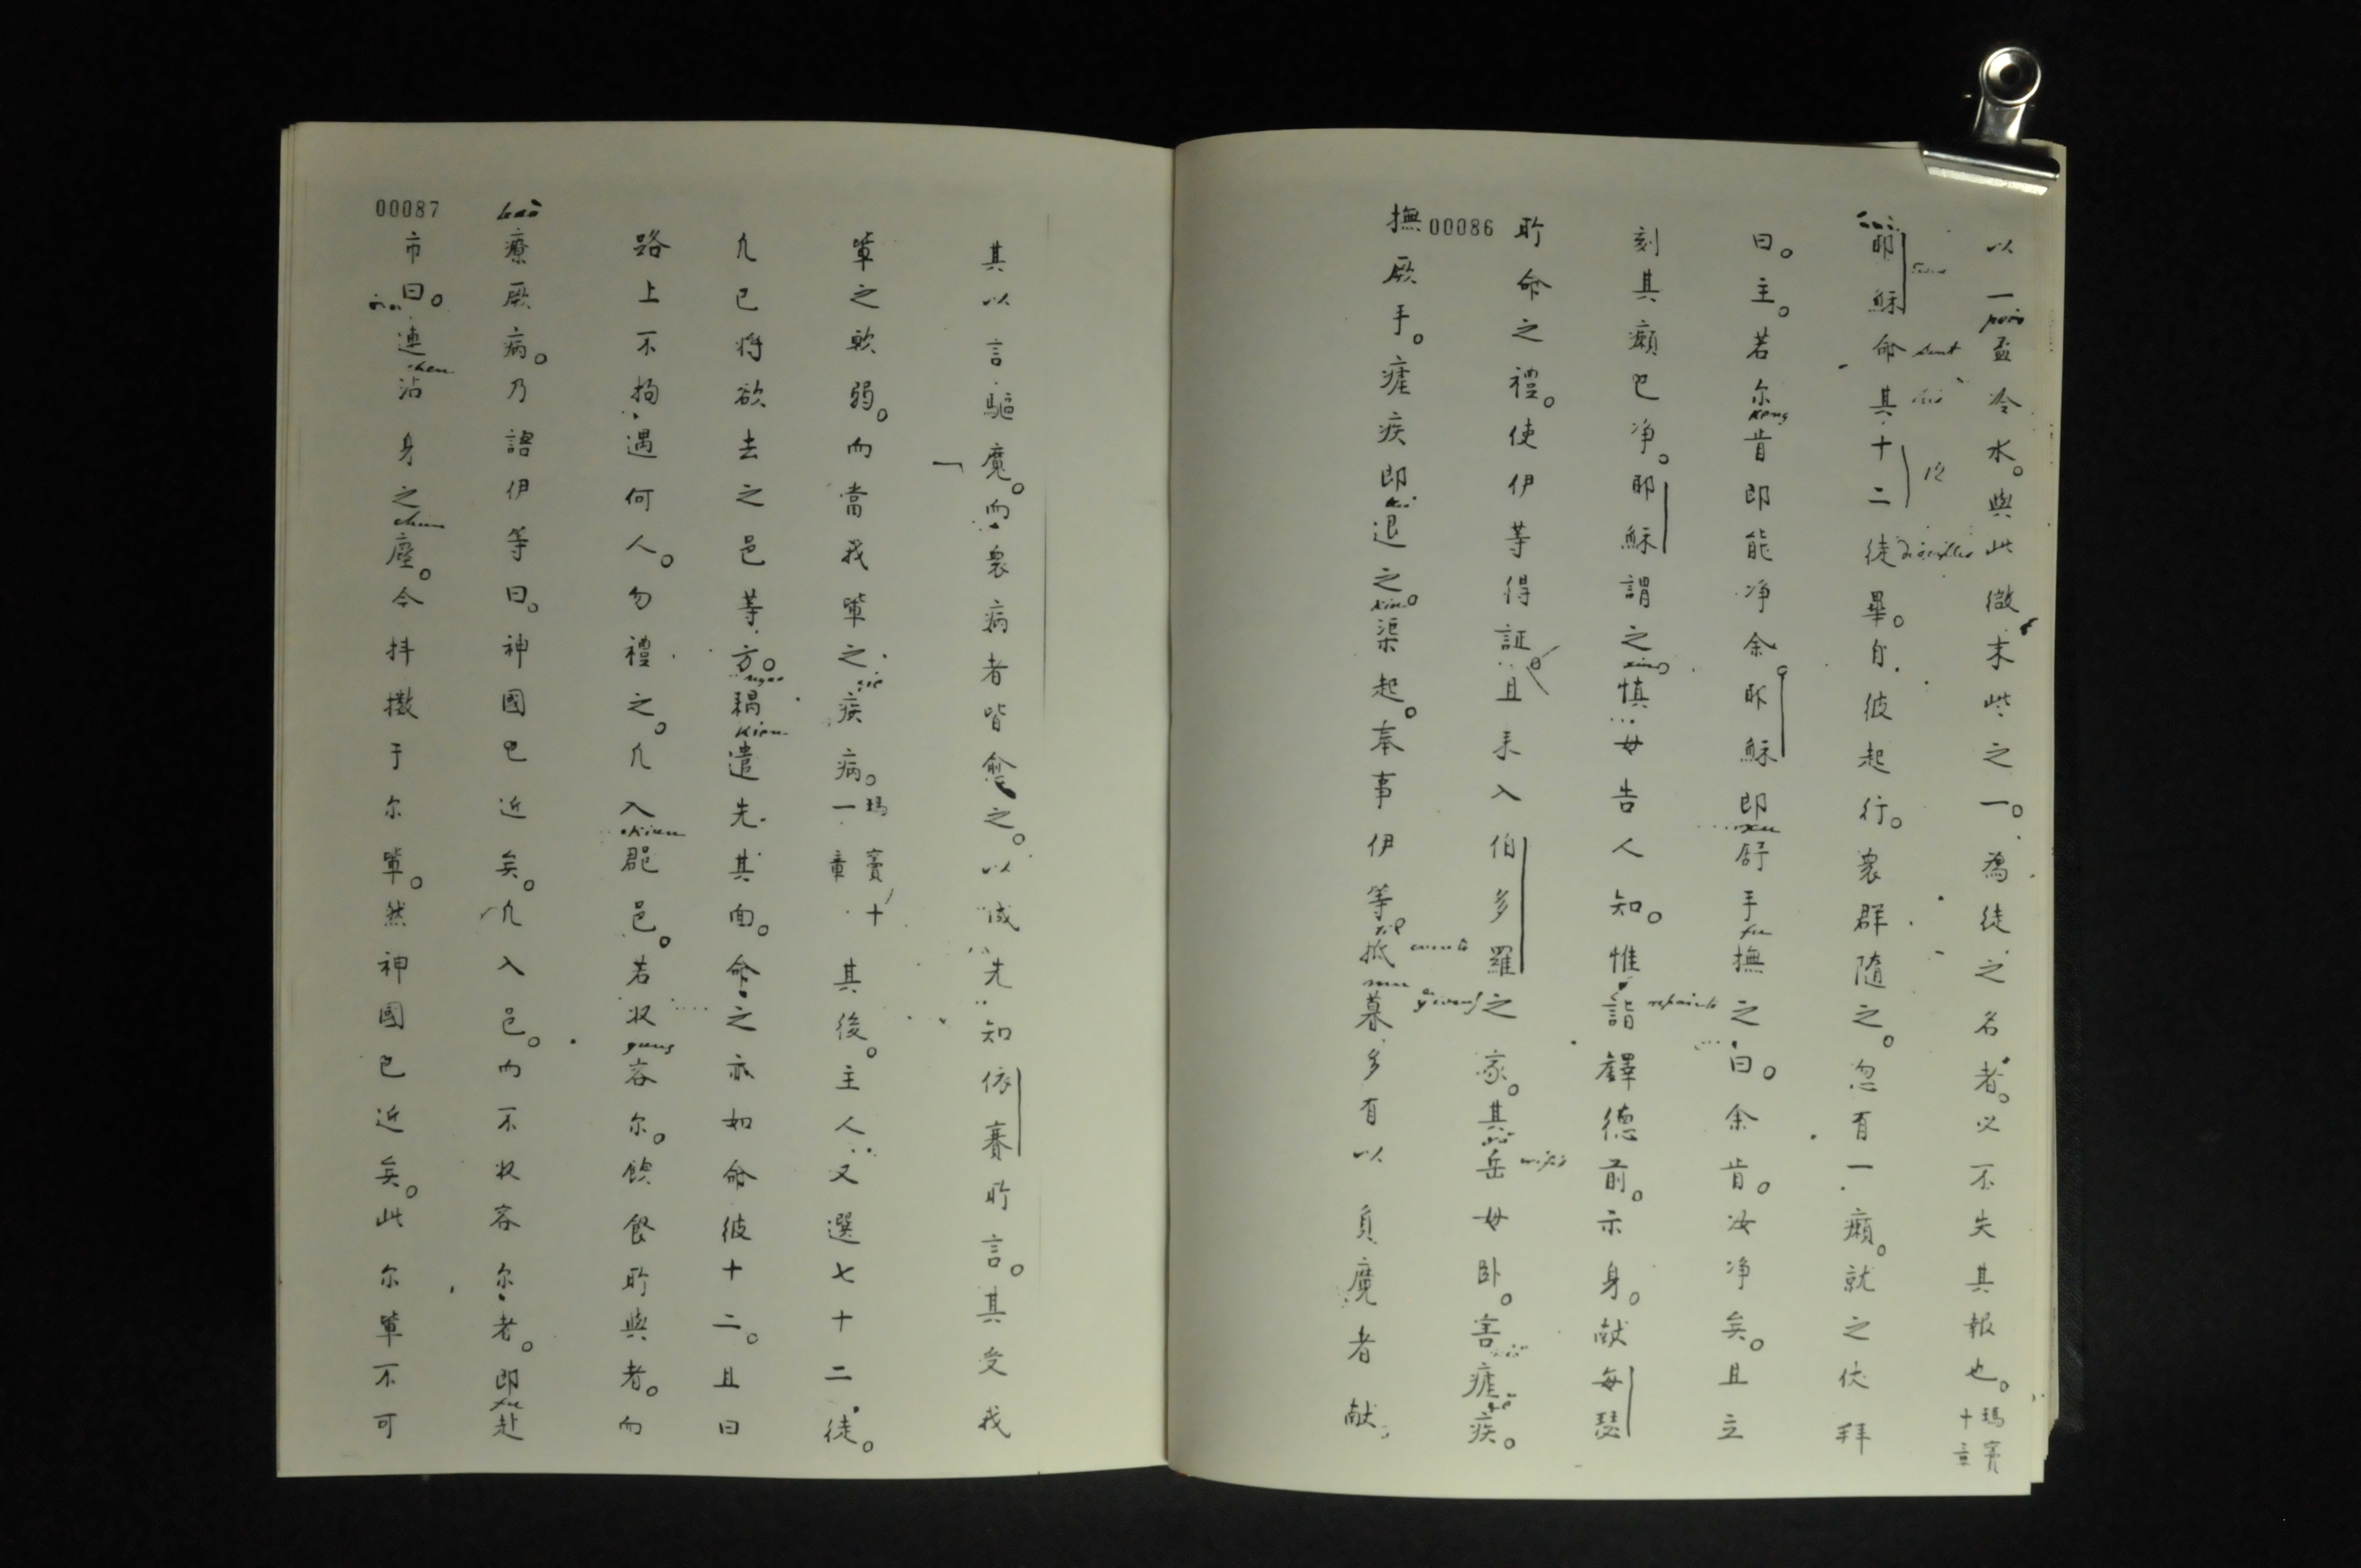 00086
以一盃冷水。與此微末此之一。為徒之名者。必不失其報也。瑪竇十章
耶穌命其十二徒畢。自彼起行。衆群隨之。忽有一癩。就之伏拜
曰。主。若尔肯即能净余。耶穌即舒手撫之曰。余肯。汝净矣。且立
刻其癩已净。耶穌謂之。慎毋告人知。惟詣鐸德前。示身。献每瑟
所命之禮。使伊等得証。且耒入伯多羅之家。其岳母臥。害瘧疾。
撫厥手。瘧疾即退之。渠起。奉事伊等。抵暮多有以負魔者献
sent
12
disciples
00087
其以言驅魔。而衆病者皆愈之。以成先知依賽所言。其受我
軰之軟弱。而當我軰之疾病。瑪竇十一章 其後。主人又選七十二徒。
凢已将欲去之邑等方。耦遣先其面。命之亦如命彼十二。且曰
路上不拘遇何人。勿禮之。凢入郡邑。若收容尔。飲食所與者。而
療厥病。乃語伊等曰。神國已近矣。凢入邑。而不收容尔者。即赴
市曰。連沾身之塵。今抖擻于尔軰。然神國已近矣。此尔軰不可